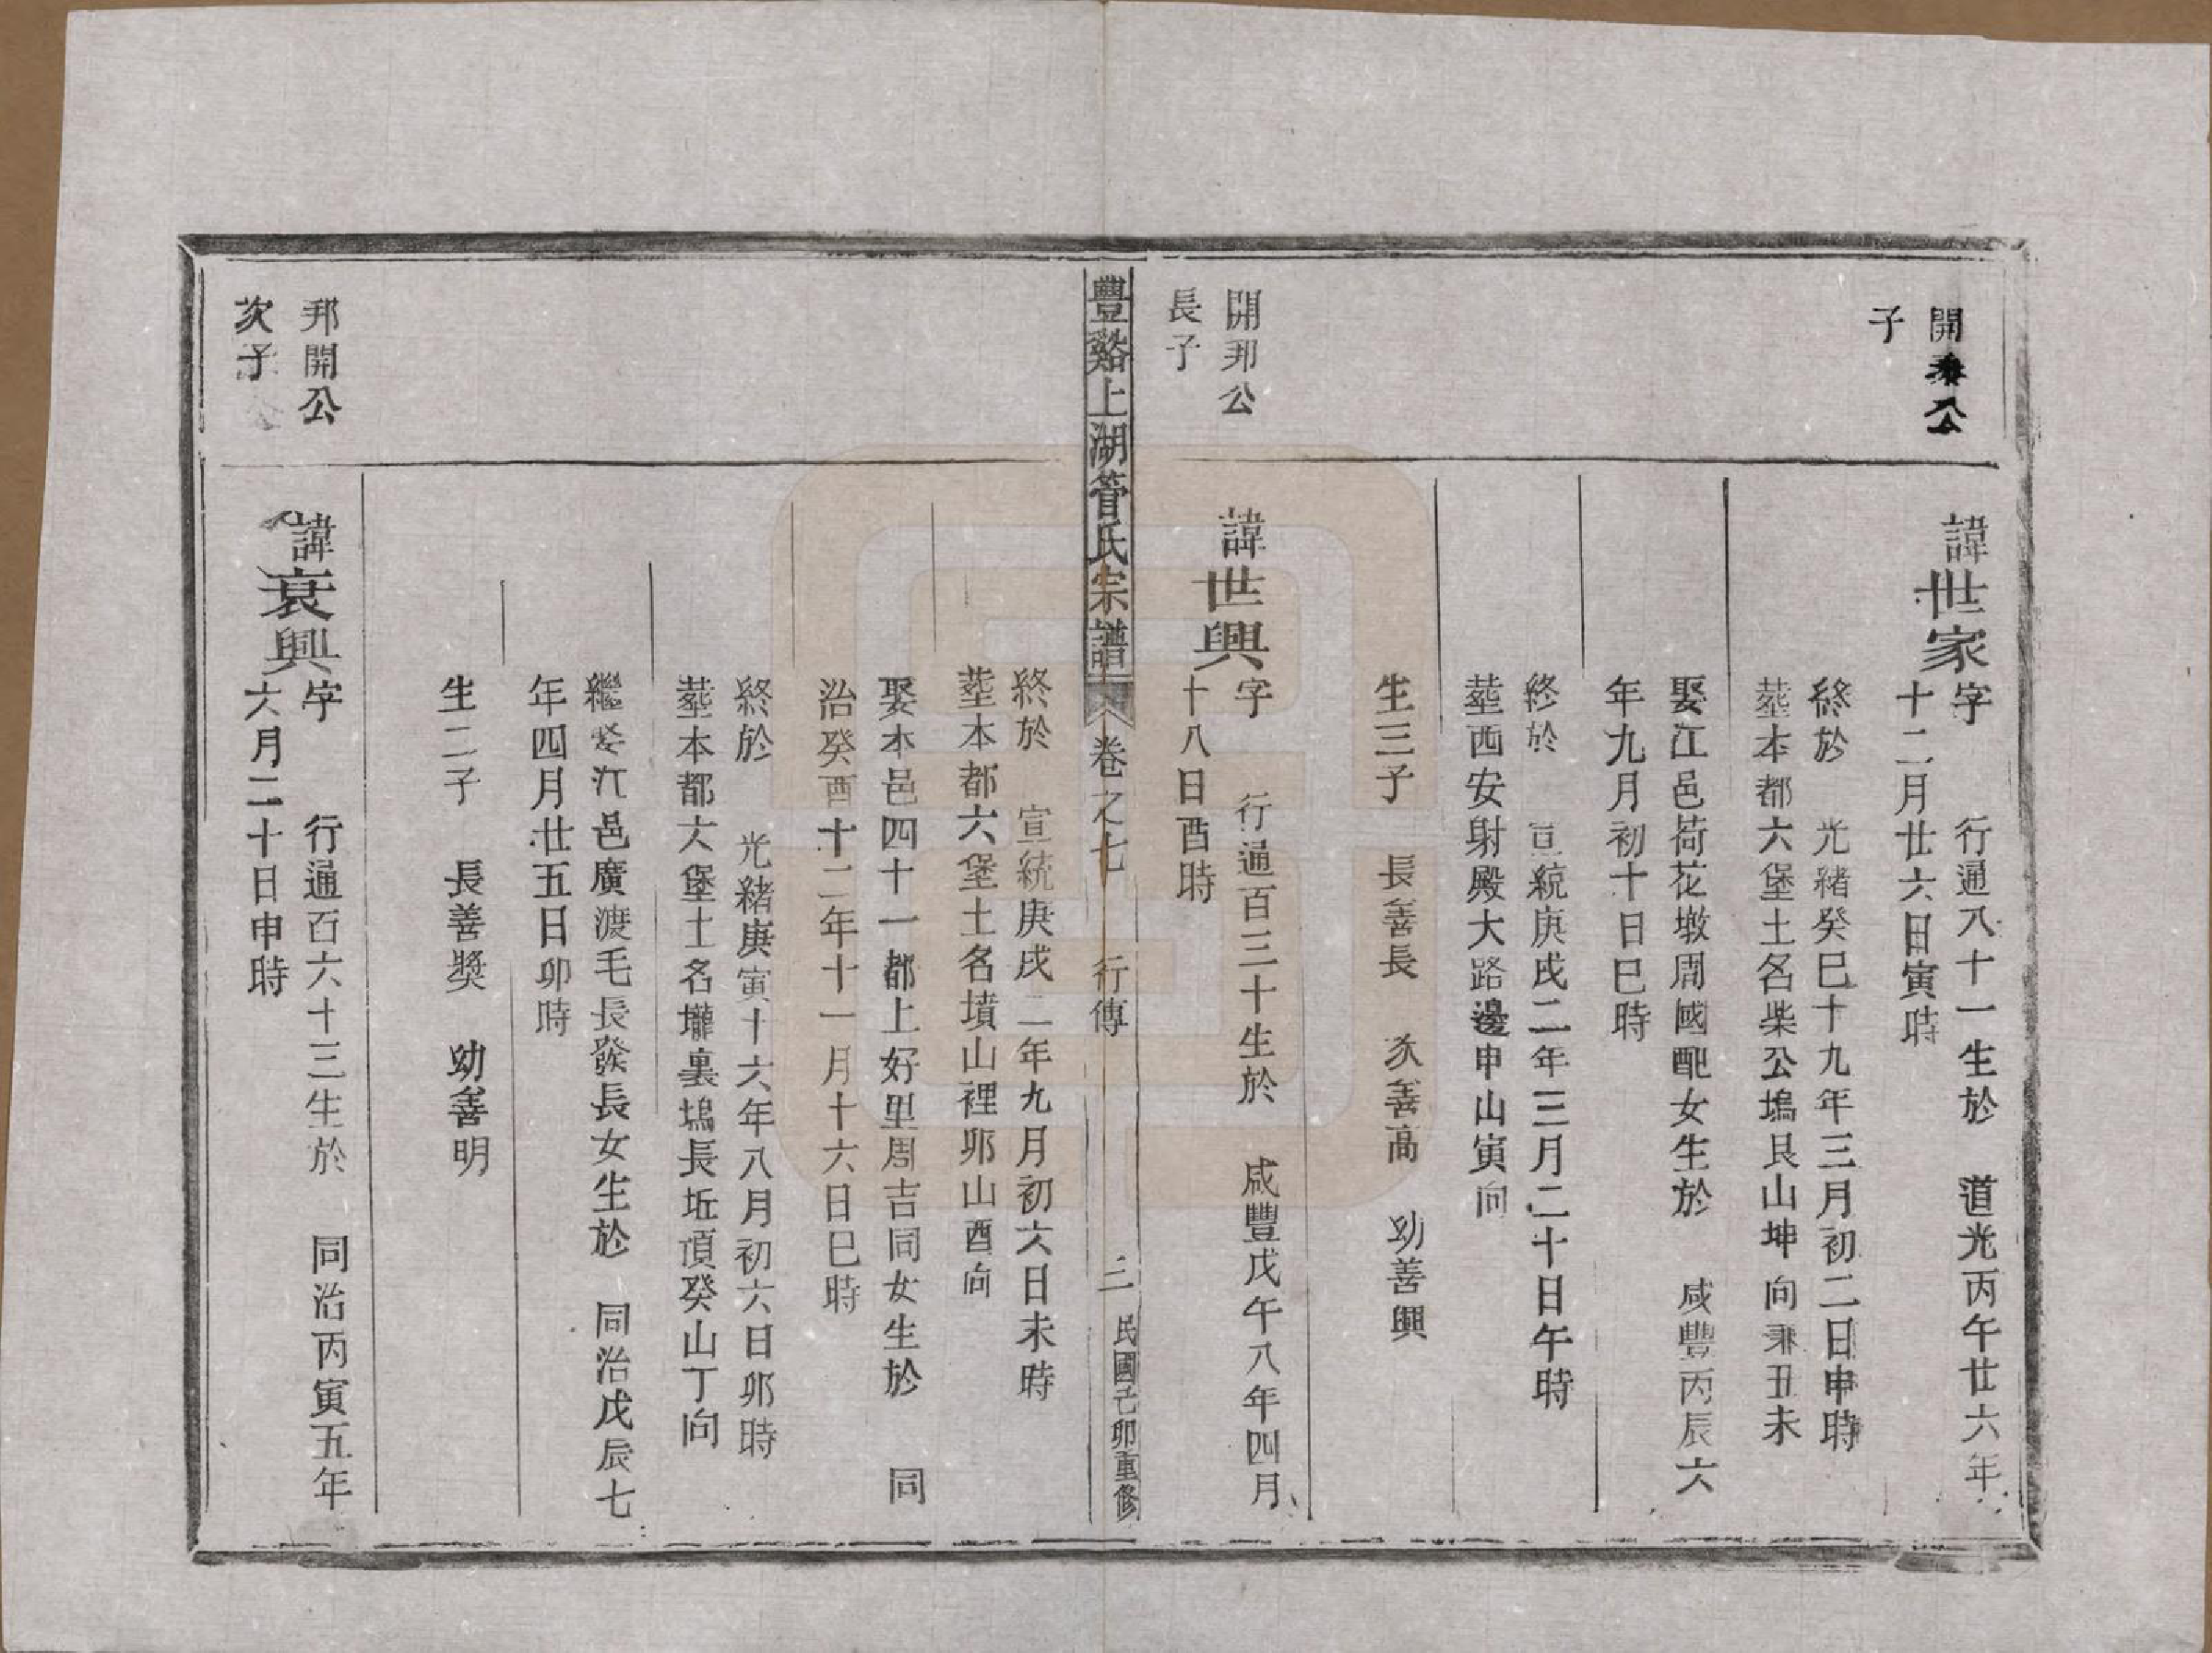 開泰公
子
諱世家字　行通八十一生於　道光丙午廿六年
十二月廿六日寅時
終於　光緒癸巳十九年三月初二日申時
塟本都六堡土名柴公塢艮山坤向兼丑未
娶江邑荷花墩周國配女生於　咸豐丙辰六
年九月初十日巳時
終於　宣統庚戌二年三月二十日午時
塟西安射殿大路邊申山寅向
生三子　長善長　次善高　幼善興
開邦公
長子
諱世興字　行通百三十生於　咸豐戊午八年四月
十八日酉時
豐谿上湖管氏宗譜　卷之七　行傳　三　民國己卯重修
終於　宣統庚戌二年九月初六日未時
塟本都六堡土名墳山裡卯山酉向
娶本邑四十一都上好里周吉同女生於　同
治癸酉十二年十一月十六日巳時
終於　光緒庚寅十六年八月初六日卯時
塟本都六堡土名壠裏塢長坵頂癸山丁向
繼娶江邑廣渡毛長發長女生於　同治戊辰七
年四月廿五日卯時
生二子　長善獎　幼善明
邦開公
次子
諱衰興字　行通百六十三生於　同治丙寅五年
六月二十日申時